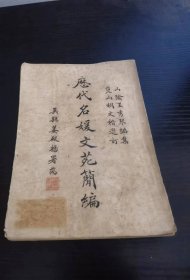 山陰王秀琴編集
胡文楷選訂
歷代名媛文苑簡編
吳縣姜殿揚署尚